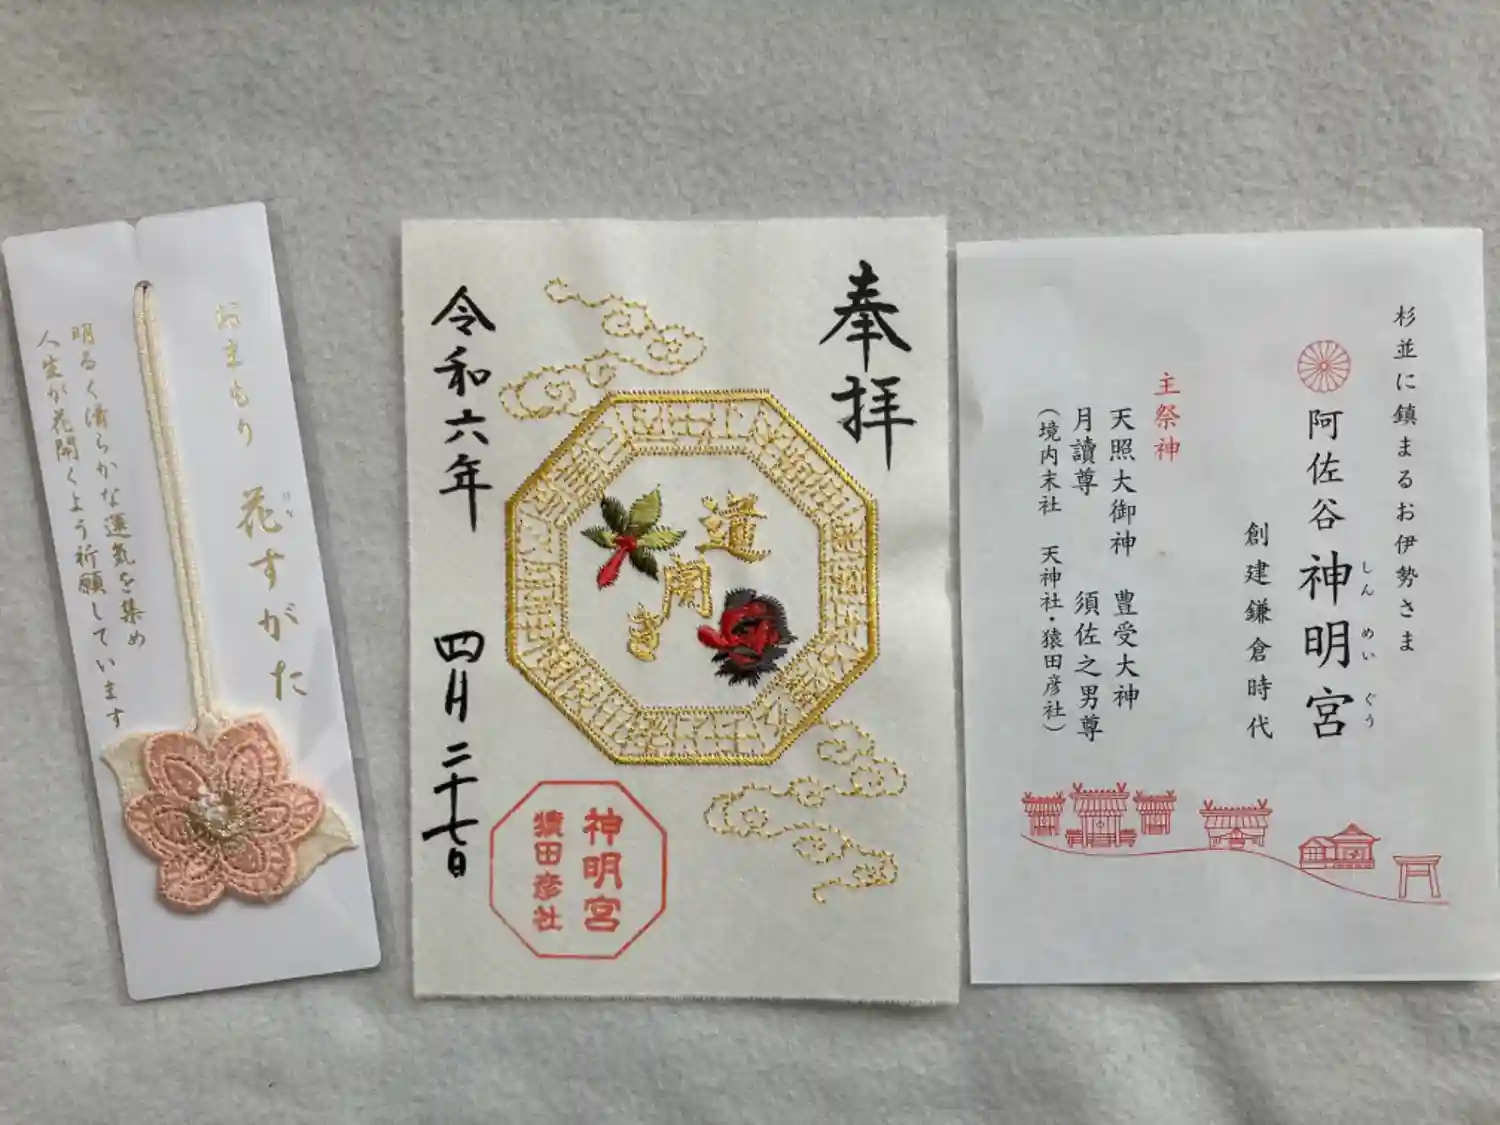 おまもり 花すがた
はな
明るく清らかな運気を集め
人生が花開くよう祈願しています
奉拝
道
開
き
令和六年 四月二十七日
神明宮
猿田彦社
杉並に鎮まるお伊勢さま
阿佐谷神明宮
しんめいぐう
創建鎌倉時代
主祭神
天照大御神 豊受大神
月讀尊 須佐之男尊
(境内末社 天神社・猿田彦社)